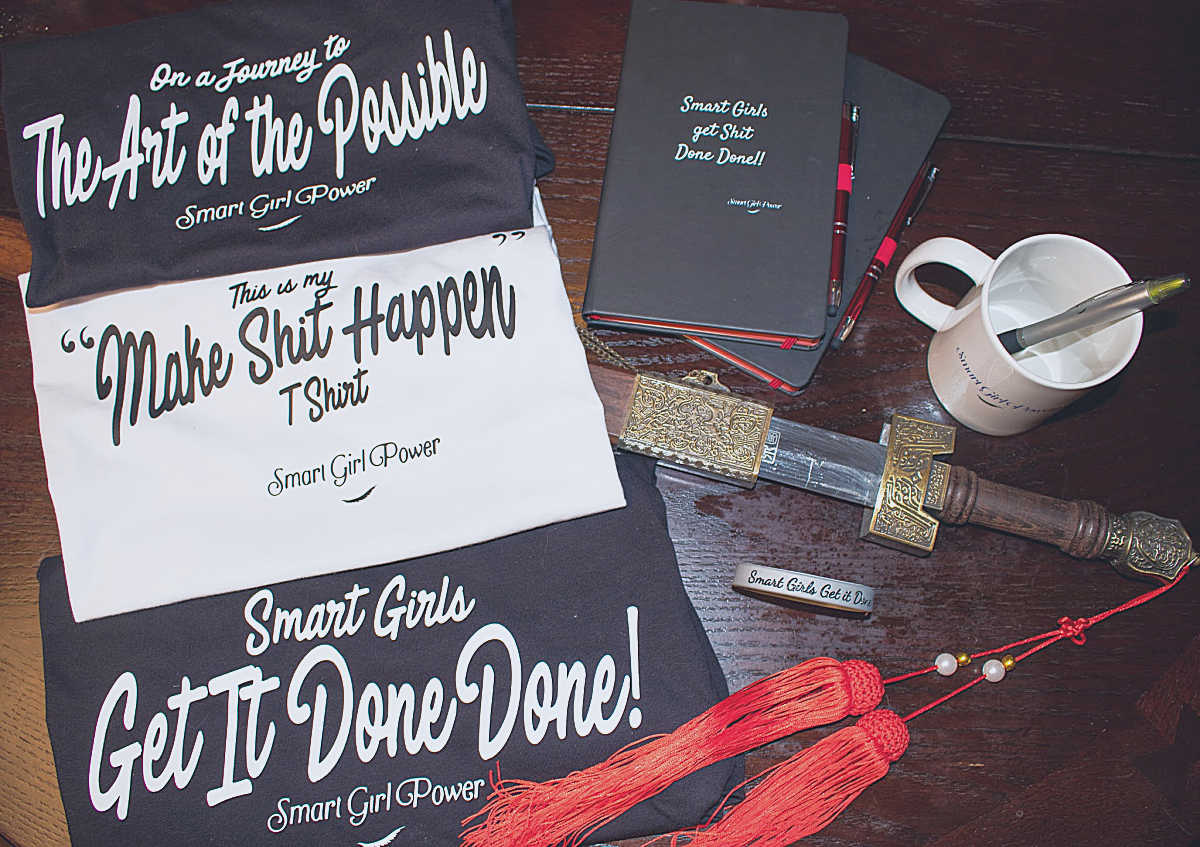 On a Journey to
The Art of the Possible
Smart Girl Power
This is my
“Make Shit Happen”
T Shirt
Smart Girl Power
Smart Girls
Get It Done Done!
Smart Girl Power
Smart Girls
get Shit
Done Done!!
Smart Girl Power
Smart Girl Power
Smart Girls Get it Done